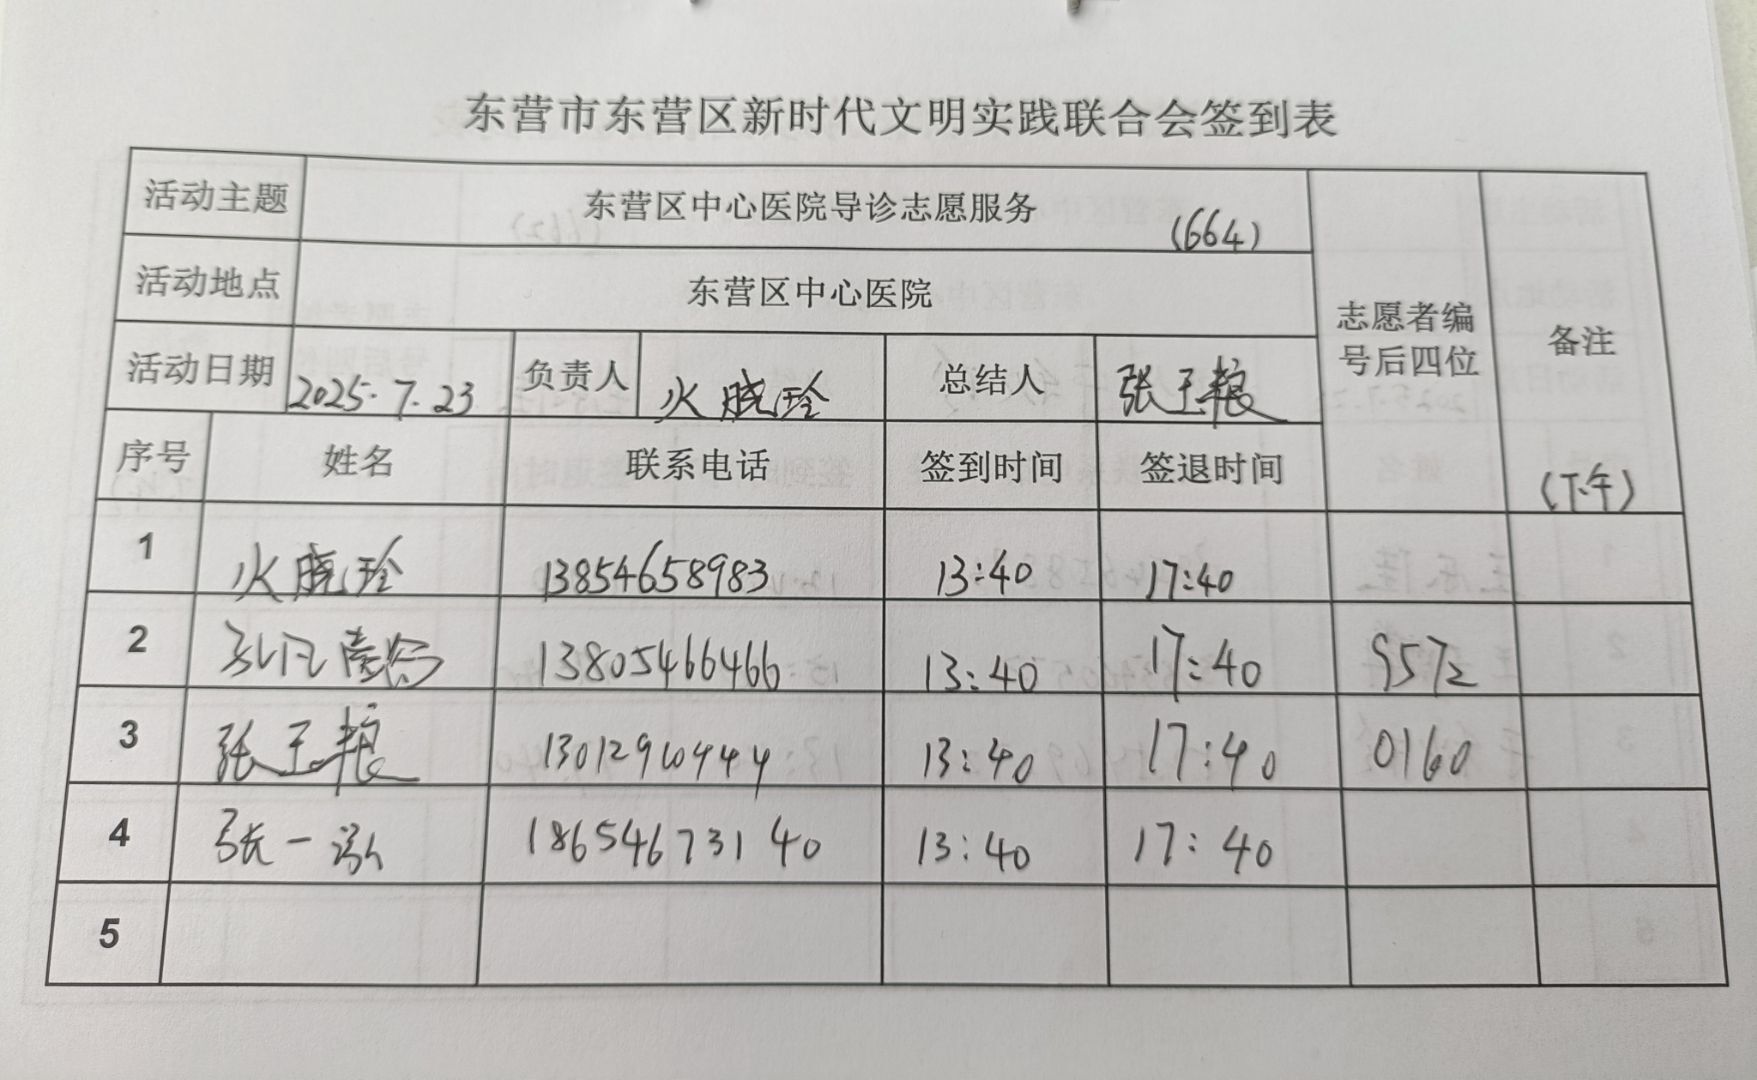 东营市东营区新时代文明实践联合会签到表
活动主题 东营区中心医院导诊志愿服务 (664)
活动地点 东营区中心医院
志愿者编号后四位 备注 (下午)
活动日期 2025.7.23 负责人 火晓玲 总结人 张玉粮
序号 姓名 联系电话 签到时间 签退时间
1 火晓玲 13854658983 13:40 17:40
2 13805466466 13:40 17:40 9572
3 张玉粮 13:40 17:40 0160
4 张一泓 18654673140 13:40 17:40
5